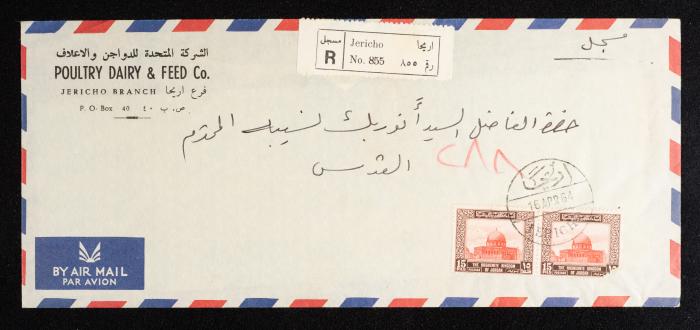 الشركة المتحدة للدواجن والاعلاف
POULTRY DAIRY & FEED Co.
JERICHO BRANCH فرع اريحا
P. O. Box 40 ص. ب ٤٠
مسجل
R
Jericho اريحا
No. 855 رقم ٨٥٥
مسجل
حضرة الفاضل السيد أنور بك نسيبه المحترم
القدس
٢٨٨
اريحا
16 AP 64
JERICHO
15 ١٥
THE HASHEMITE KINGDOM
OF JORDAN
15 ١٥
THE HASHEMITE KINGDOM
OF JORDAN
BY AIR MAIL
PAR AVION